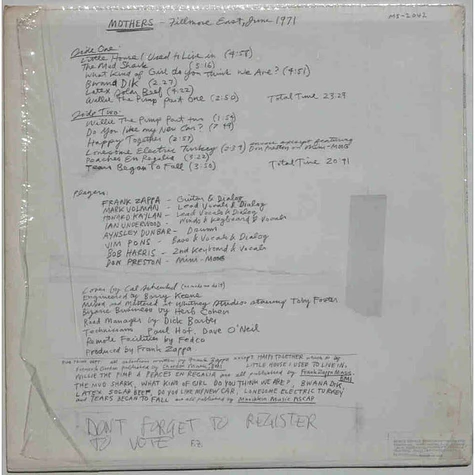 MOTHERS - Fillmore East, June 1971
MS-2042
Side One:
Little House I Used to Live in (4:58)
The Mud Shark (5:16)
What Kind of Girl do You Think We Are? (4:51)
Bwana Dik (2:27)
Latex Solar Beef (4:22)
Willie The Pimp Part One (2:50) Total Time 23:29
Side Two:
Willie The Pimp Part two (1:54)
Do You Like my New Car? (7:49)
Happy Together (2:57)
Lonesome Electric Turkey (2:39)
Don Preston on Mini-Moog
Peaches En Regalia (3:22)
Tears Began To Fall (3:30) Total Time 20:41
Players:
FRANK ZAPPA - Guitar & Dialog
MARK VOLMAN - Lead Vocals & Dialog
HOWARD KAYLAN - Lead Vocals & Dialog
IAN UNDERWOOD - Winds & Keyboard & Vocals
AYNSLEY DUNBAR - Drums
JIM PONS - Bass & Vocals & Dialog
BOB HARRIS - 2nd Keyboard & Vocals
DON PRESTON - Mini-Moog
Cover by Cal Schenkel
Engineered by Barry Keene
Mixed and Mastered at Whitney Studios starring Toby Foster
Bizarre Business by Herb Cohen
Road Manager by Dick Barber
Technicians Paul Hof, Dave O'Neil
Remote Facilities by Fedco
Produced by Frank Zappa
all selections written by Frank Zappa except HAPPY TOGETHER written by
LITTLE HOUSE I USED TO LIVE IN,
WILLIE THE PIMP & PEACES EN REGALIA are all published by Frank Zappa Music, BMI
THE MUD SHARK, WHAT KIND OF GIRL DO YOU THINK WE ARE?, BWANA DIK,
LATEX SOLAR BEEF, DO YOU LIKE MY NEW CAR?, LONESOME ELECTRIC TURKEY
and TEARS BEGAN TO FALL are all published by Munchkin Music ASCAP
DON'T FORGET TO REGISTER
TO VOTE FZ